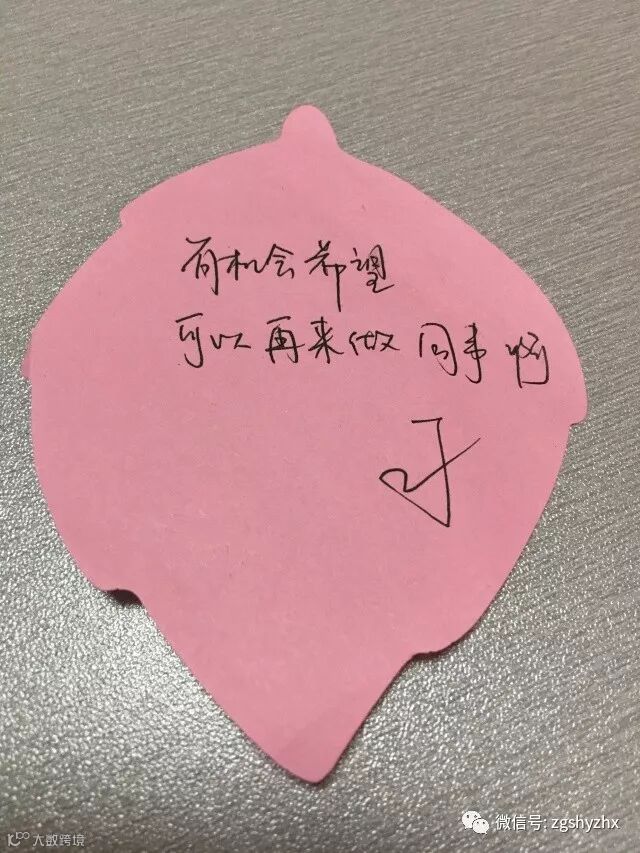 有机会希望
可以再来做同事啊
微信号: zgshyzhx
10100 大数跨境